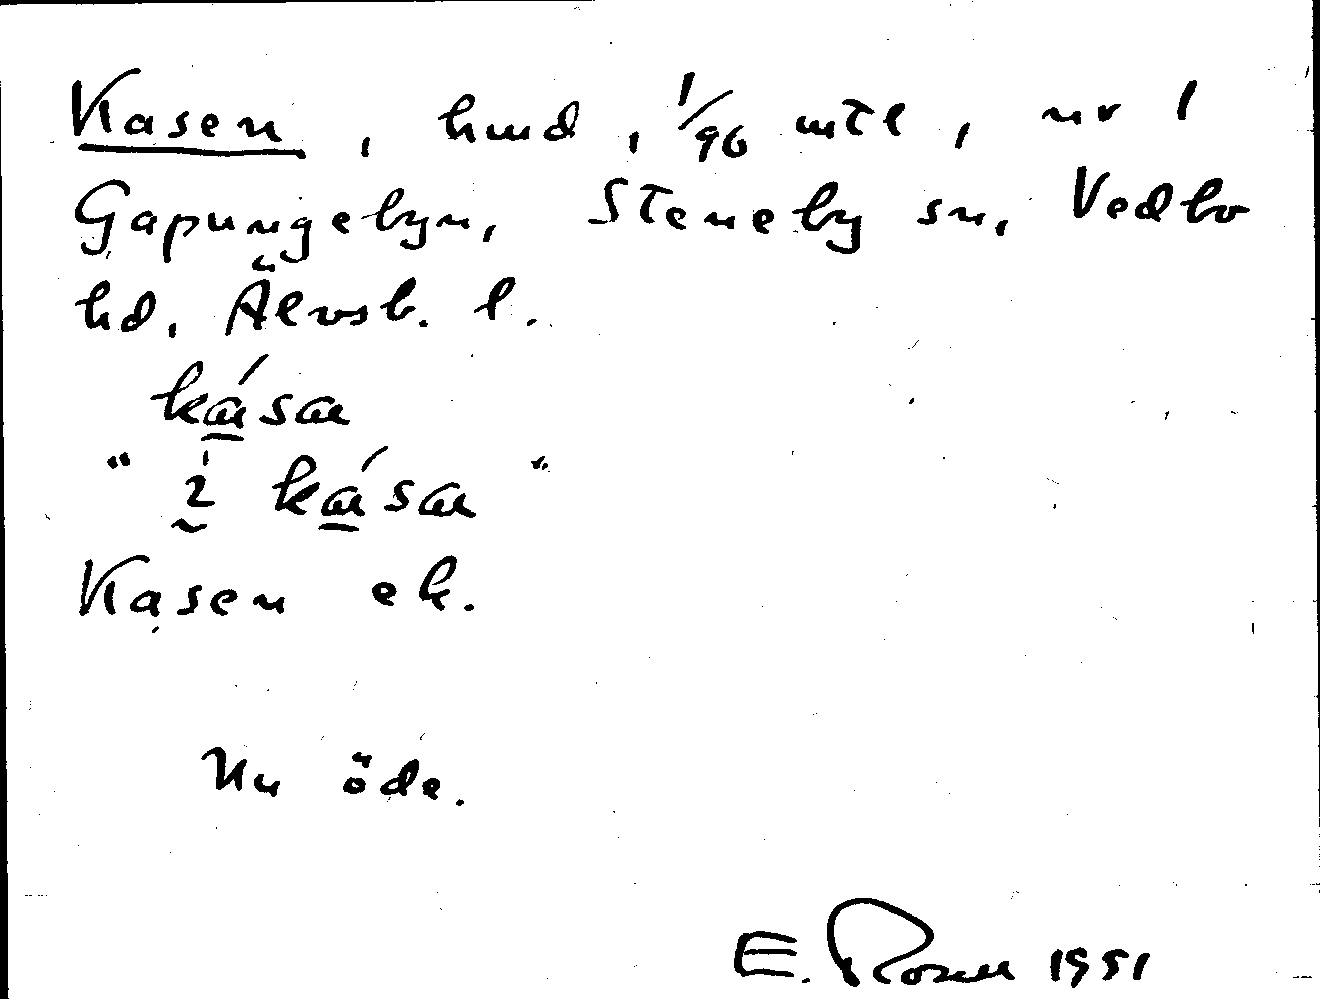 Kasen, hmd, 1/96 mtl, nr 1
Gapungebyn, Steneby sn, Vedbo
hd, Älvsb. l.
ká̲sa
" i ká̲sa "
Kasen ek.
Nu öde.
E. Rosell 1951